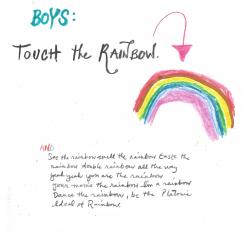 BOYS:
TOUCH the RAINBOW.
AND
See the rainbow smell the rainbow taste the
rainbow double rainbow all the way
yeah yeah you are the rainbow
your movie the rainbow I'm a rainbow
Dance the rainbow, be the Platonic
ideal of Rainbow